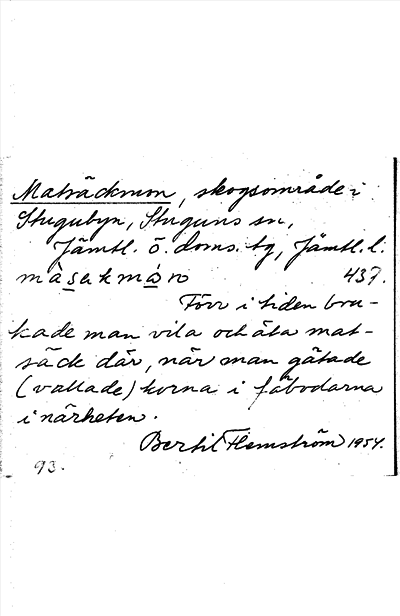 Matsäckmon, skogsområde i
Stugubyn, Stuguns sn,
Jämtl. ö. doms. tg, Jämtl. l.
màsakmó̱n 437.
Förr i tiden bru-
kade man vila och äta mat-
säck där, när man gätade
(vallade) korna i fäbodarna
i närheten.
Bertil Flemström 1954.
93.